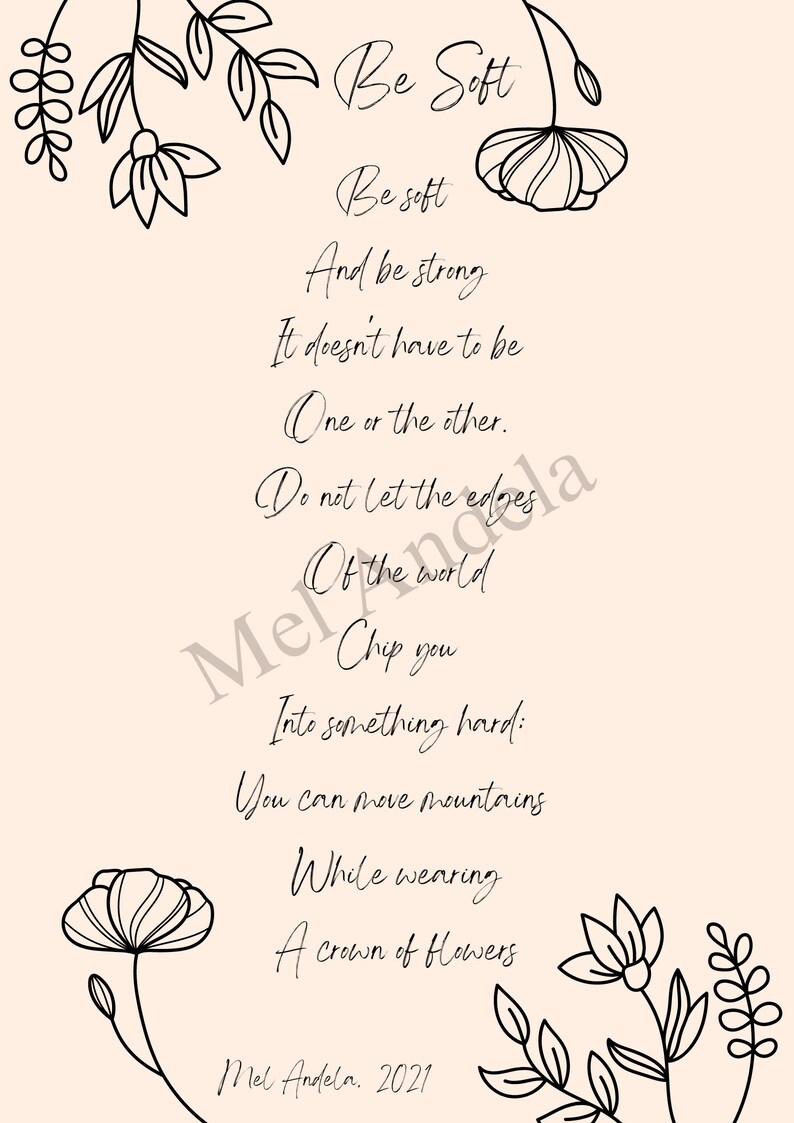 Be Soft
Be soft
And be strong
It doesn't have to be
One or the other.
Do not let the edges
Of the world
Chip you
Into something hard;
You can move mountains
While wearing
A crown of flowers
Mel Andela. 2021
Mel Andela